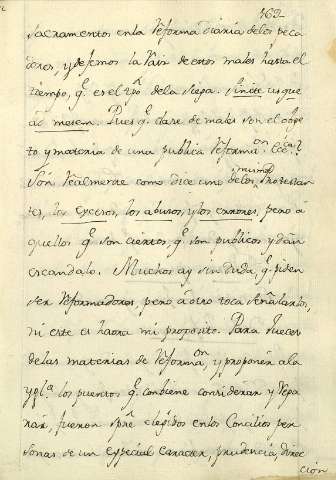 162
sacramentos en la reforma diaria de los peca
dores, y dexemos la raiz de estos males hasta el
tiempo, q.e es el de la Siega. Sinite usque
ad messem. Pues q.e clase de males son el obge
to y materia de una publica reforma.on Ecc.ca?
Son realmente como dice uno de los mismos Protestan
tes, los excesos, los abusos, y los errores, pero a
quellos q.e son ciertos, q.e son publicos y dan
escandalo. Muchos ay sin duda q.e piden
ser reformadores, pero á otro toca señalarlos,
ni este es haora mi proposito. Para Jueces
de las materias de reforma.on, y proponer a la
Ygl.a los puntos q.e conbiene considerar y repa
rar, fueron spre elegidos en los Concilios per
sonas de un especial caracter, prudencia, direc
cion